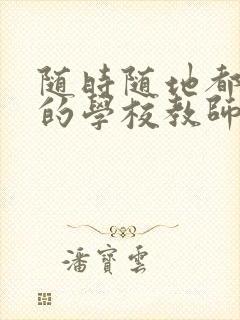 随時随地都
的學校教師
潘寶雲